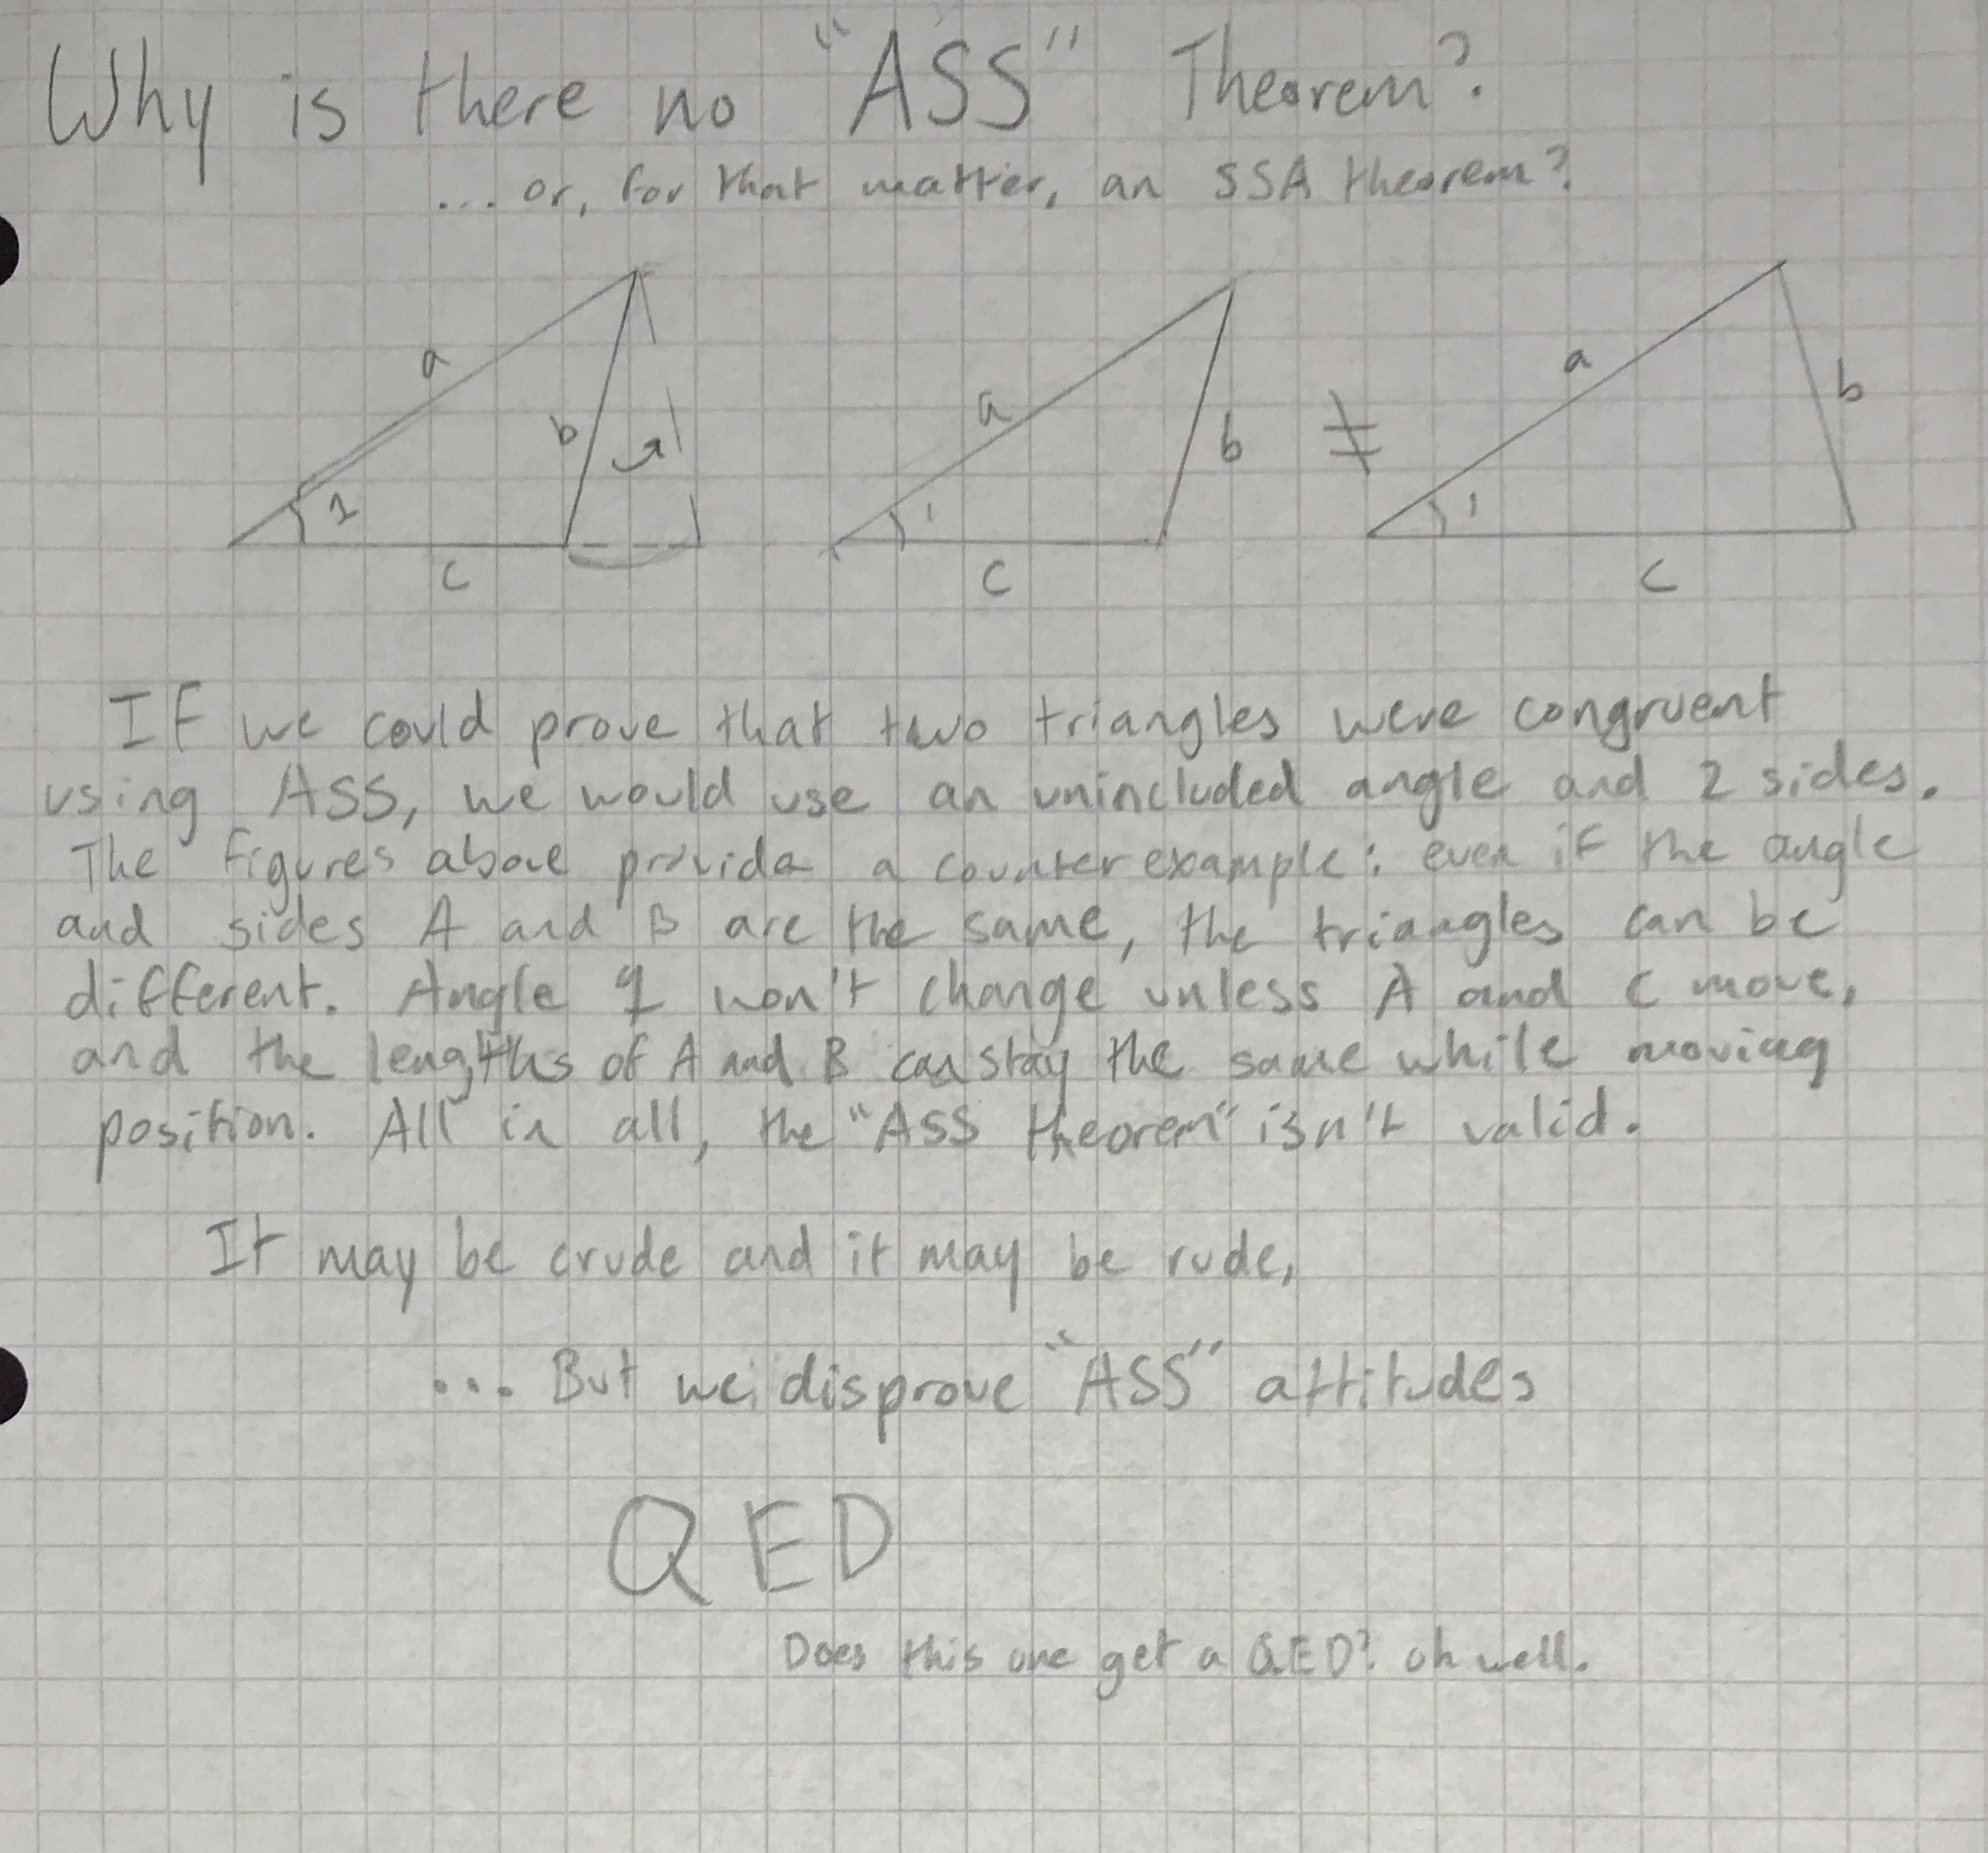 Why is there no "ASS" Theorem?
... or, for that matter, an SSA theorem?
a
b
1
c
a
b
1
c
≠
a
b
1
c
If we could prove that two triangles were congruent
using ASS, we would use an unincluded angle and 2 sides.
The figures above provide a counterexample: even if the angle
and sides A and B are the same, the triangles can be
different. Angle 1 won't change unless A and C move,
and the lengths of A and B can stay the same while moving
position. All in all, the "ASS theorem" isn't valid.
It may be crude and it may be rude,
... But we disprove "ASS" attitudes
QED
Does this one get a QED? oh well.